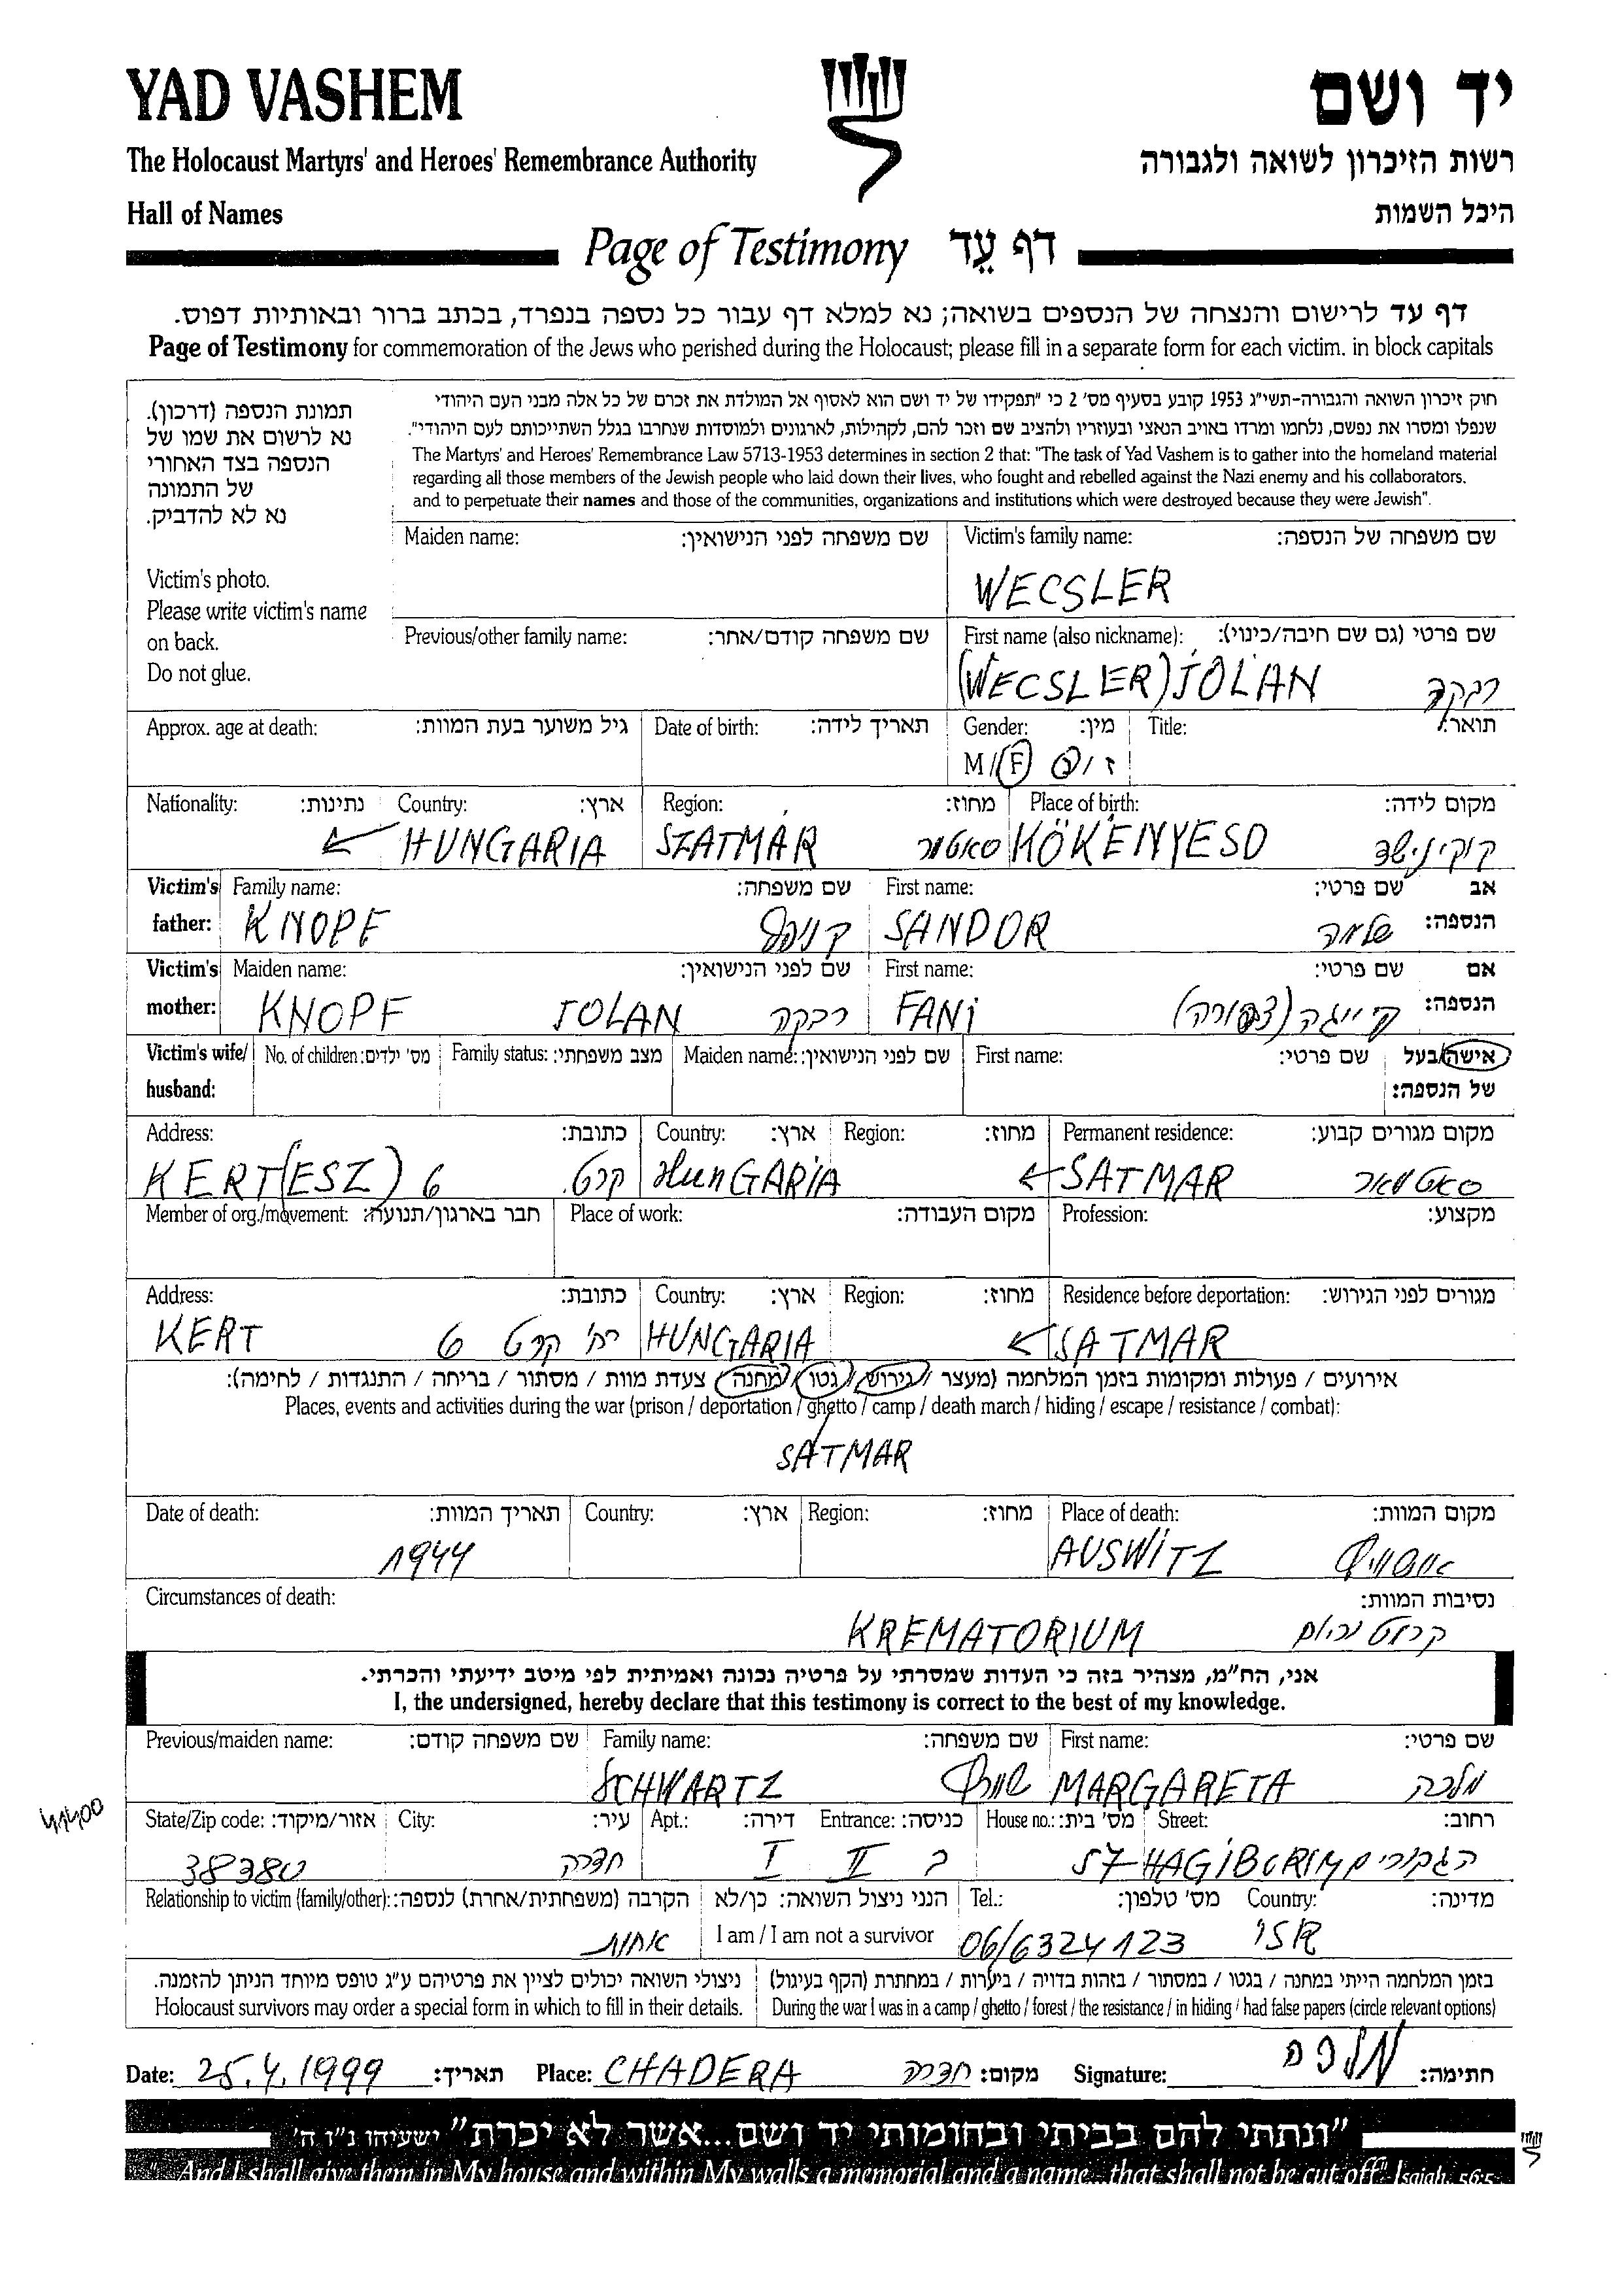 YAD VASHEM
יד ושם
The Holocaust Martyrs' and Heroes' Remembrance Authority
רשות הזיכרון לשואה ולגבורה
Hall of Names
היכל השמות
Page of Testimony דף עֵד
דף עד לרישום והנצחה של הנספים בשואה; נא למלא דף עבור כל נספה בנפרד, בכתב ברור ובאותיות דפוס.
Page of Testimony for commemoration of the Jews who perished during the Holocaust; please fill in a separate form for each victim. in block capitals
תמונת הנספה (דרכון).
נא לרשום את שמו של
הנספה בצד האחורי
של התמונה
נא לא להדביק.
Victim's photo.
Please write victim's name
on back.
Do not glue.
חוק זיכרון השואה והגבורה-תשי"ג 1953 קובע בסעיף מס' 2 כי "תפקידו של יד ושם הוא לאסוף אל המולדת את זכרם של כל אלה מבני העם היהודי
שנפלו ומסרו את נפשם, נלחמו ומרדו באויב הנאצי ובעוזריו ולהציב שם וזכר להם, לקהילות, לארגונים ולמוסדות שנחרבו בגלל השתייכותם לעם היהודי".
The Martyrs' and Heroes' Remembrance Law 5713-1953 determines in section 2 that: "The task of Yad Vashem is to gather into the homeland material
regarding all those members of the Jewish people who laid down their lives, who fought and rebelled against the Nazi enemy and his collaborators.
and to perpetuate their names and those of the communities, organizations and institutions which were destroyed because they were Jewish".
Maiden name: שם משפחה לפני הנישואין: Victim's family name: שם משפחה של הנספה:
WECSLER
Previous/other family name: שם משפחה קודם/אחר: First name (also nickname): שם פרטי (גם שם חיבה/כינוי):
(WECSLER) JOLAN רבקה
Approx. age at death: גיל משוער בעת המוות: Date of birth: תאריך לידה: Gender: מין: Title: תואר:
M/F ז/נ
Nationality: נתינות: Country: ארץ: Region: מחוז: Place of birth: מקום לידה:
HUNGARIA SZATMAR סאטמר KÖKENYESD קוקינישד
Victim's Family name: שם משפחה: First name: שם פרטי: אב
father: KNOPF קנופף SANDOR שלמה הנספה:
Victim's Maiden name: שם לפני הנישואין: First name: שם פרטי: אם
mother: KNOPF JOLAN רבקה FANi (צפורה) הנספה:
Victim's wife/ No. of children: מס' ילדים: Family status: מצב משפחתי: Maiden name: שם לפני הנישואין: First name: שם פרטי: אישה/בעל
husband: של הנספה:
Address: כתובת: Country: ארץ: Region: מחוז: Permanent residence: מקום מגורים קבוע:
KERT(ESZ) 6 קרט. HunGARiA SATMAR סאטמאר
Member of org./movement: חבר בארגון/תנועה: Place of work: מקום העבודה: Profession: מקצוע:
Address: כתובת: Country: ארץ: Region: מחוז: Residence before deportation: מגורים לפני הגירוש:
KERT 6 רח' קרט HUNGARIA SATMAR
אירועים / פעולות ומקומות בזמן המלחמה (מעצר / גירוש / גטו / מחנה / צעדת מוות / מסתור / בריחה / התנגדות / לחימה):
Places, events and activities during the war (prison / deportation / ghetto / camp / death march / hiding / escape / resistance / combat):
SATMAR
Date of death: תאריך המוות: Country: ארץ: Region: מחוז: Place of death: מקום המוות:
1944 AUSWiTZ אושוויץ
Circumstances of death: נסיבות המוות:
KREMATORIUM
אני, הח"מ, מצהיר בזה כי העדות שמסרתי על פרטיה נכונה ואמיתית לפי מיטב ידיעתי והכרתי.
I, the undersigned, hereby declare that this testimony is correct to the best of my knowledge.
Previous/maiden name: שם משפחה קודם: Family name: שם משפחה: First name: שם פרטי:
SCHWARTZ שוורץ MARGARETA מלכה
State/Zip code: אזור/מיקוד: City: עיר: Apt.: דירה: Entrance: כניסה: House no.: מס' בית: Street: רחוב:
38380 חדרה I II ב 57 HAGiBORIM הגבורים
Relationship to victim (family/other): הקרבה (משפחתית/אחרת) לנספה: הנני ניצול השואה: כן/לא Tel.: מס' טלפון: Country: מדינה:
אחות I am / I am not a survivor 06/6324123 ISR
ניצולי השואה יכולים לציין את פרטיהם ע"ג טופס מיוחד הניתן להזמנה. בזמן המלחמה הייתי במחנה / בגטו / במסתור / בזהות בדויה / ביערות / במחתרת (הקף בעיגול)
Holocaust survivors may order a special form in which to fill in their details. During the war I was in a camp / ghetto / forest / the resistance / in hiding / had false papers (circle relevant options)
Date: 25.4.1999 תאריך: Place: CHADERA חדרה מקום: Signature: מלכה חתימה:
"ונתתי להם בביתי ובחומותי יד ושם...אשר לא יכרת" ישעיהו נ"ו ה'
"And I shall give them in My house and within My walls a memorial and a name...that shall not be cut off". Isaiah, 56:5